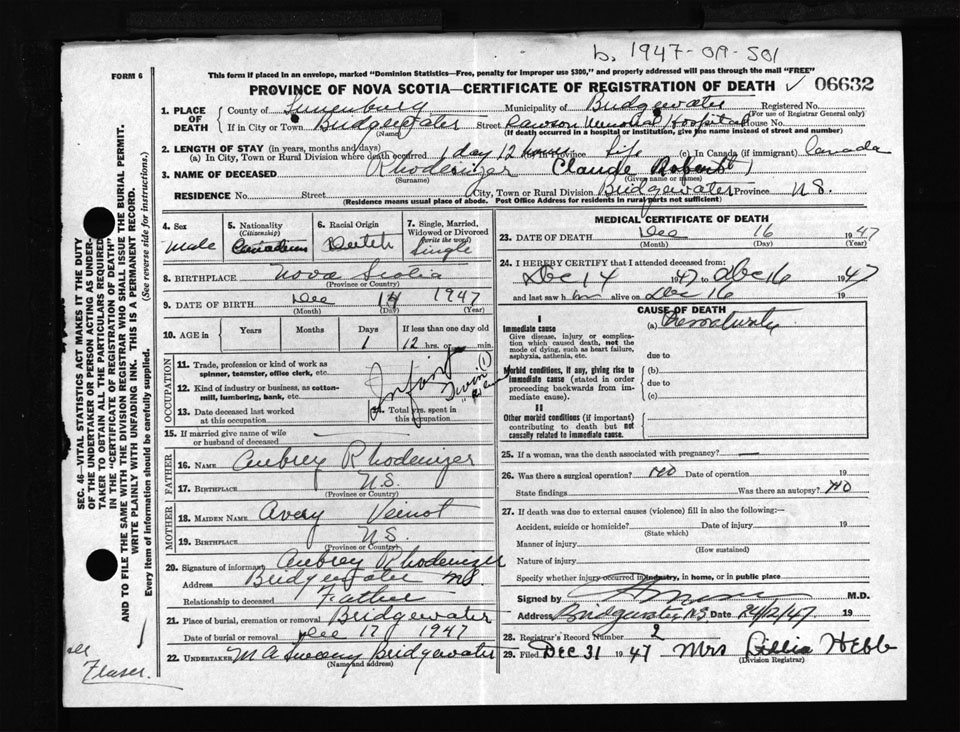 b. 1947-09-501
FORM 6
This form if placed in an envelope, marked "Dominion Statistics—Free, penalty for improper use $300," and properly addressed will pass through the mail "FREE"
PROVINCE OF NOVA SCOTIA—CERTIFICATE OF REGISTRATION OF DEATH ✓ 06632
1. PLACE OF DEATH
County of Lunenburg Municipality of Bridgewater Registered No.
(For use of Registrar General only)
If in City or Town Bridgewater Street Dawson Memorial Hospital House No.
(Name) (If death occurred in a hospital or institution, give the name instead of street and number)
2. LENGTH OF STAY (in years, months and days)
(a) In City, Town or Rural Division where death occurred 1 day 12 hours (b) In Province Life (c) In Canada (if immigrant) Canada
3. NAME OF DECEASED Rhodenizer Claude Robert
(Surname) (Given name or names)
RESIDENCE No. Street City, Town or Rural Division Bridgewater Province N.S.
(Residence means usual place of abode. Post Office Address for residents in rural parts not sufficient)
4. Sex
Male
5. Nationality
(Citizenship)
Canadian
6. Racial Origin
Dutch
7. Single, Married, Widowed or Divorced
(write the word)
Single
8. BIRTHPLACE Nova Scotia
(Province or Country)
9. DATE OF BIRTH Dec 14 1947
(Month) (Day) (Year)
10. AGE in
Years Months Days If less than one day old
1 12 hrs. or min.
OCCUPATION
11. Trade, profession or kind of work as spinner, teamster, office clerk, etc.
12. Kind of industry or business, as cotton-mill, lumbering, bank, etc.
Infant
Twin (1)
13. Date deceased last worked at this occupation
14. Total yrs. spent in this occupation
15. If married give name of wife or husband of deceased
FATHER
16. NAME Aubrey Rhodenizer
17. BIRTHPLACE N.S.
(Province or Country)
MOTHER
18. MAIDEN NAME Avery Veinot
19. BIRTHPLACE N.S.
(Province or Country)
20. Signature of informant Aubrey Rhodenizer
Address Bridgewater NS
Relationship to deceased Father
21. Place of burial, cremation or removal Bridgewater
Date of burial or removal Dec 17 1947
22. UNDERTAKER M A Sweeny Bridgewater
(Name and address)
MEDICAL CERTIFICATE OF DEATH
23. DATE OF DEATH Dec 16 1947
(Month) (Day) (Year)
24. I HEREBY CERTIFY that I attended deceased from:
Dec 14 1947 to Dec 16 1947
and last saw h im alive on Dec 16 19
CAUSE OF DEATH
I
Immediate cause
Give disease, injury or complication which caused death, not the mode of dying, such as heart failure, asphyxia, asthenia, etc.
(a) Prematurity
due to
Morbid conditions, if any, giving rise to immediate cause (stated in order proceeding backwards from immediate cause).
(b)
due to
(c)
II
Other morbid conditions (if important) contributing to death but not causally related to immediate cause.
25. If a woman, was the death associated with pregnancy? —
26. Was there a surgical operation? NO Date of operation 19
State findings Was there an autopsy? NO
27. If death was due to external causes (violence) fill in also the following:—
Accident, suicide or homicide? Date of injury 19
(State which)
Manner of injury
(How sustained)
Nature of injury
Specify whether injury occurred in industry, in home, or in public place
Signed by M.D.
Address Bridgewater, N.S. 24/12/47 19
28. Registrar's Record Number 2
29. Filed DEC 31 1947 Mrs Lillia Hebb
(Division Registrar)
SEC. 46—VITAL STATISTICS ACT MAKES IT THE DUTY
OF THE UNDERTAKER OR PERSON ACTING AS UNDER-
TAKER TO OBTAIN ALL THE PARTICULARS REQUIRED
IN THE "CERTIFICATE OF REGISTRATION OF DEATH"
AND TO FILE THE SAME WITH THE DIVISION REGISTRAR WHO SHALL ISSUE THE BURIAL PERMIT.
WRITE PLAINLY WITH UNFADING INK. THIS IS A PERMANENT RECORD.
Every item of information should be carefully supplied. (See reverse side for instructions.)
Fraser.